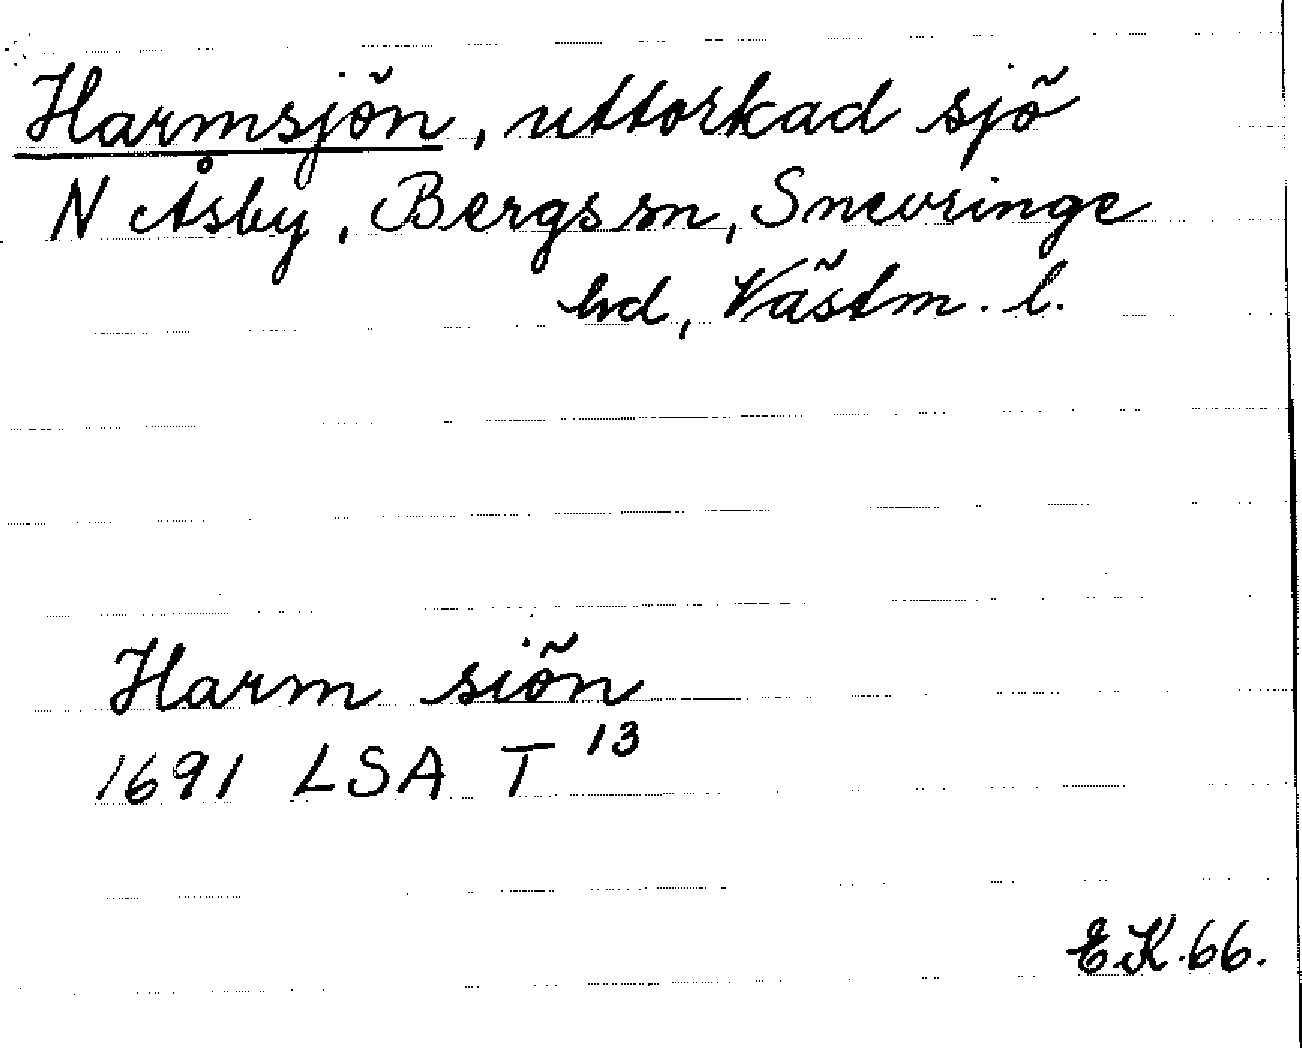 Harmsjön, uttorkad sjö
N Åsby, Bergs sn, Snevringe
hd, Västm. l.
Harm siön
1691 LSA T 13
E.K. 66.